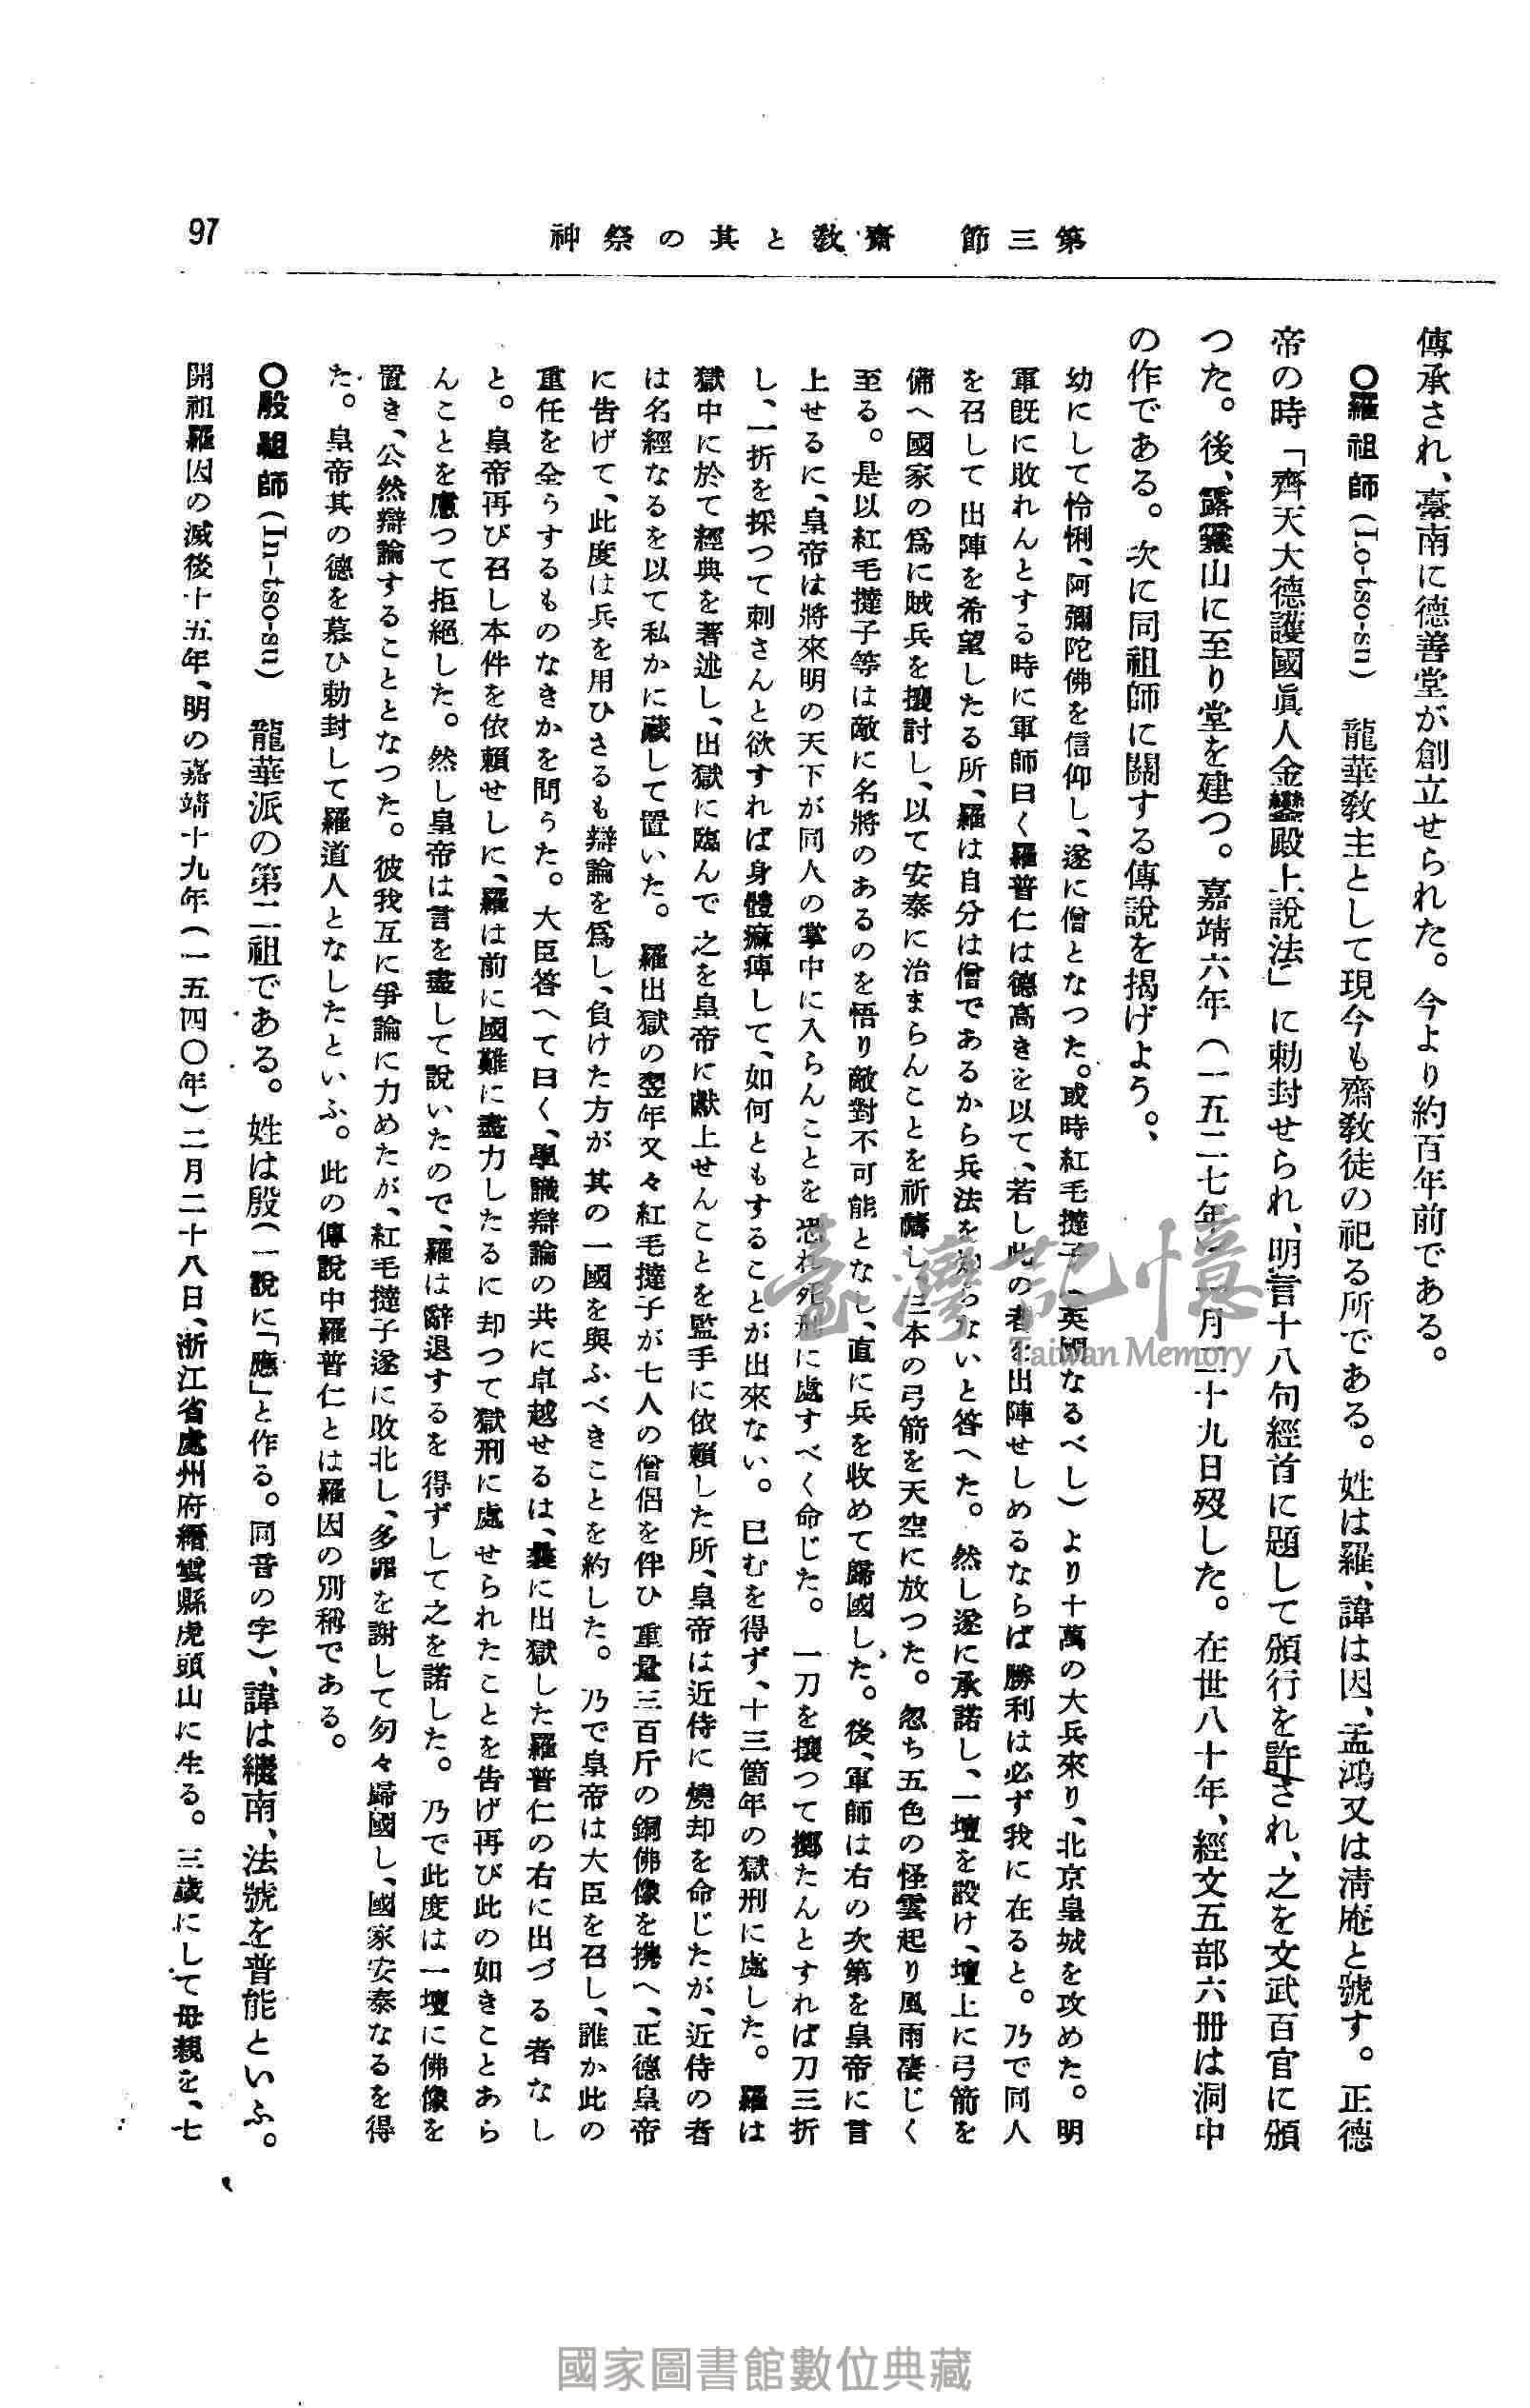 第三節　齋敎と其の祭神
97
傳承され、臺南に德善堂が創立せられた。今より約百年前である。
〇羅祖師(Lo-tso-su)　龍華敎主として現今も齋敎徒の祀る所である。姓は羅、諱は因、孟鴻又は淸庵と號す。正德
帝の時「齊天大德護國眞人金鑾殿上說法」に勅封せられ、明言十八句經首に題して頒行を許され、之を文武百官に頒
つた。後、露靈山に至り堂を建つ。嘉靖六年(一五二七年)一月二十九日歿した。在世八十年、經文五部六冊は洞中
の作である。次に同祖師に關する傳說を揭げよう。
幼にして怜悧、阿彌陀佛を信仰し、遂に僧となつた。或時紅毛撻子(英國なるべし)より十萬の大兵來り、北京皇城を攻めた。明
軍旣に敗れんとする時に軍師曰く羅普仁は德高きを以て、若し此の者を出陣せしめるならば勝利は必ず我に在ると。乃で同人
を召して出陣を希望したる所、羅は自分は僧であるから兵法を知らないと答へた。然し遂に承諾し、一壇を設け、壇上に弓箭を
備へ國家の爲に賊兵を擾討し、以て安泰に治まらんことを祈禱し、三本の弓箭を天空に放つた。忽ち五色の怪雲起り風雨凄じく
至る。是以紅毛撻子等は敵に名將のあるのを悟り敵對不可能となし、直に兵を收めて歸國した。後、軍師は右の次第を皇帝に言
上せるに、皇帝は將來明の天下が同人の掌中に入らんことを恐れ死刑に處すべく命じた。一刀を振つて擲たんとすれば刀三折
し、一折を採つて刺さんと欲すれば身體痲痺して、如何ともすることが出來ない。已むを得ず、十三箇年の獄刑に處した。羅は
獄中に於て經典を著述し、出獄に臨んで之を皇帝に獻上せんことを監手に依賴した所、皇帝は近侍に燒却を命じたが、近侍の者
は名經なるを以て私かに藏して置いた。羅出獄の翌年又々紅毛撻子が七人の僧侶を伴ひ重量三百斤の銅佛像を携へ、正德皇帝
に告げて、此度は兵を用ひさるも辯論を爲し、負けた方が其の一國を與ふべきことを約した。乃で皇帝は大臣を召し、誰か此の
重任を全うするものなきかを問うた。大臣答へて曰く、學識辯論の共に卓越せるは、曩に出獄した羅普仁の右に出づる者なし
と。皇帝再び召し本件を依賴せしに、羅は前に國難に盡力したるに却つて獄刑に處せられたことを告げ再び此の如きことあら
んことを慮つて拒絕した。然し皇帝は言を盡して說いたので、羅は辭退するを得ずして之を諾した。乃で此度は一壇に佛像を
置き、公然辯論することとなつた。彼我互に爭論に力めたが、紅毛撻子遂に敗北し、多罪を謝して匆々歸國し、國家安泰なるを得
た。皇帝其の德を慕ひ勅封して羅道人となしたといふ。此の傳說中羅普仁とは羅因の別稱である。
〇殷祖師(In-tso-su)　龍華派の第二祖である。姓は殷(一說に「應」と作る。同音の字)、諱は繼南、法號を普能といふ。
開祖羅因の滅後十五年、明の嘉靖十九年(一五四〇年)二月二十八日、浙江省處州府縉雲縣虎頭山に生る。三歲にして母親を、七
臺灣記憶
Taiwan Memory
國家圖書館數位典藏